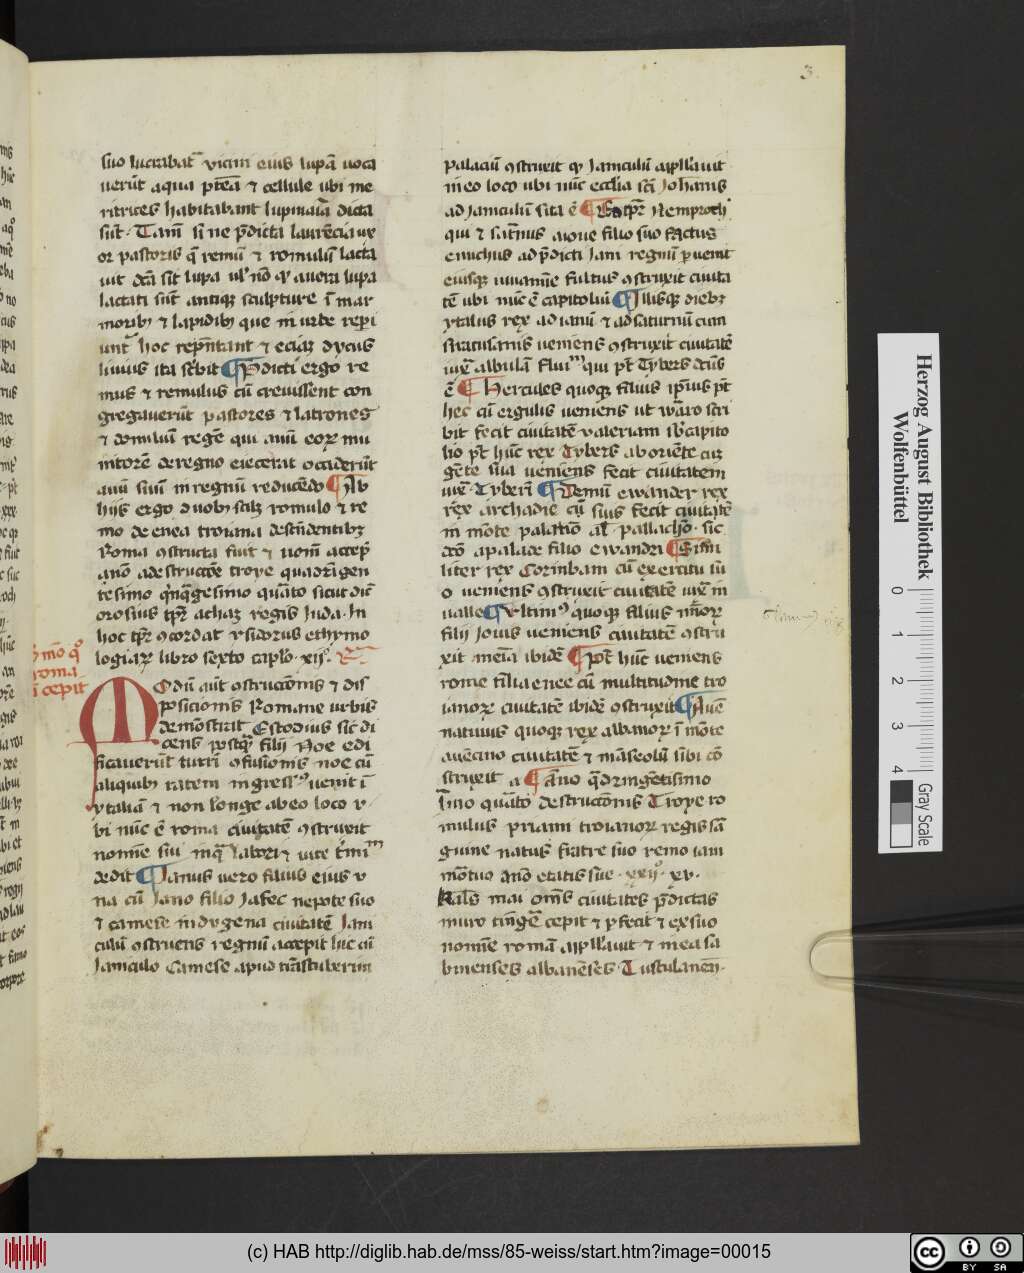 3
suo lucrabat᷑ vicini eius lupā voca
uerūt aqua ptea ⁊ cellule ubi me
ritrices habitabant lupinaria dicta
sūt. Tam̄ si ne p̄dicta laurēcia ux
or pastoris q̄ remū ⁊ romulū lacta
uit dc̄a sit lupa ul' nō q' a uera lupa
lactati sūt antiq sculpture ī mar
morib; ⁊ lapidib; que in urbe reperi
unt᷑ hoc rep̄ntant ⁊ eciā tytus
liuius ita sc'bit ¶ P̄dicti ergo re
mus ⁊ remulus cū creuissent con
gregauerūt pastores ⁊ latrones
⁊ domulū regē qui auū eoꝝ mu
mitorē de regno eiecerat occiderūt
auū suū in regnū reducēdo ¶ Ab
hijs ergo duob; scil; romulo ⁊ re
mo de enea troiana descendentib;
Roma ꝯstructa fuit ⁊ nom̄ accep̄
āno a destructōe troye quadringen
tesimo q̄nq̄gesimo quāto sicut dic̄
orosius tp̄r achaz regis Iuda. In
hoc tp̄r ꝯcordat ysidorus ethymo
logiaꝝ libro sexto caplo. xij.
mo q°
roma
ī cepit
Modū aūt ꝯstructōnis ⁊ dis
posicionis Romane urbis
demōstrat Estodius sic di
cens postq̄ filij Noe edi
ficauerūt turrī ꝯfusionis noe cū
aliquib; ratem ingress' uenit ī
ytaliā ⁊ non longe ab eo loco v
bi nūc ē roma ciuitatē ꝯstruxit
nomine sui in qua labori ⁊ uite t'minū
dedit ¶ Ianus uero filius eius v
na cū Iano filio Iafec nepote suo
⁊ camese indygena ciuitatē Iani
culū ꝯstruens regnū accepit hic cū
Ianiculo Camese apud transtuberim
palaciū ꝯstruxit qđ Ianiculū appllauit
in eo loco ubi nūc ecclia sc̄i Iohānis
ad Ianiculū sita ē ¶ Eo tp̄r Nemproth
qui ⁊ sat'nus a ioue filio suo factus
enuchus ad p̄dicti Iani regnū puenit
eiusq; iuuamīe fultus ꝯstruxit ciuita
tē ubi nūc ē capitoliū ¶ Illisq; dieb;
ytalus rex ad ianū ⁊ ad saturnū cum
siracusanis ueniens ꝯstruxit ciuitatē
iux̄ albulā fluuiū qui p̄t Tyberis dc̄us
ē ¶ Hercules quoq; filius ip̄ius p̄t
hec cū ergulis ueniens ut waro scri
bit fecit ciuitatē valeriam sb' capito
lio p̄t hūc rex Tyberis ab oriēte cū
gēte sua ueniens fecit ciuitatem
iux̄ Tyberī ¶ Demū ewander rex
rex archadie cū suis fecit ciuitatē
in mōte palatino al' pallacho. sic
dc̄o a palade filio ewandri ¶ Simi
liter rex Corinbam cū exercitu su
o ueniens ꝯstruxit ciuitatē iux̄ in
ualle ¶ Vltim' quoq; filius min̄or
filij Iouis ueniens ciuitatē ꝯstru
xit meiā ibidē ¶ Pōt hūc ueniens
rome filia enee cū multitudine tro
ianoꝝ ciuitatē ibidē ꝯstruxit ¶ Auē
natinus quoq; rex albanoꝝ ī mōte
auēcino ciuitatē ⁊ māseolū sibi cō
struxit a ¶ Anno q̄dringētisimo
imo quāto destructōnis Troye ro
mulus priami troianoꝝ regis sā
guine natus fratre suo remo iam
mōtuo āno etatis sue. xxij°. xv.
Kal's mai om̄s ciuitates p̄dictas
muro cinge cepit ⁊ pfecit ⁊ ex suo
nomine romā appllauit ⁊ in ea sa
binenses albanēses. Tusculanen.
Herzog August Bibliothek
Wolfenbüttel
0 1 2 3 4
Gray Scale
(c) HAB http://diglib.hab.de/mss/85-weiss/start.htm?image=00015
cc BY SA